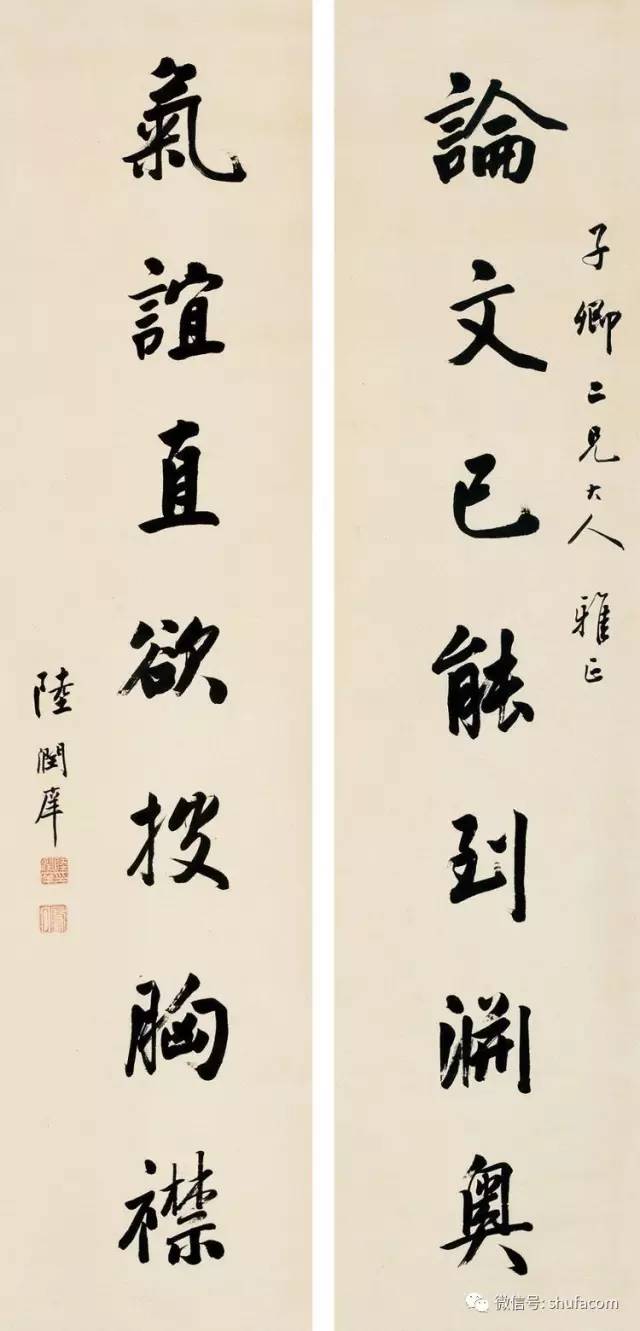 子卿二兄大人 雅正
論文已能到淵奧
氣誼直欲投胸襟
陸潤庠
微信号: shufacom